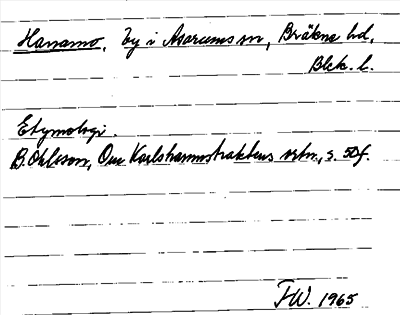 Hanamo, by i Asarums sn, Bräkne hd,
Blek. l.
Etymologi.
B. Ohlsson, Om Karlshamnstraktens ortn., s. 50f.
FW. 1965